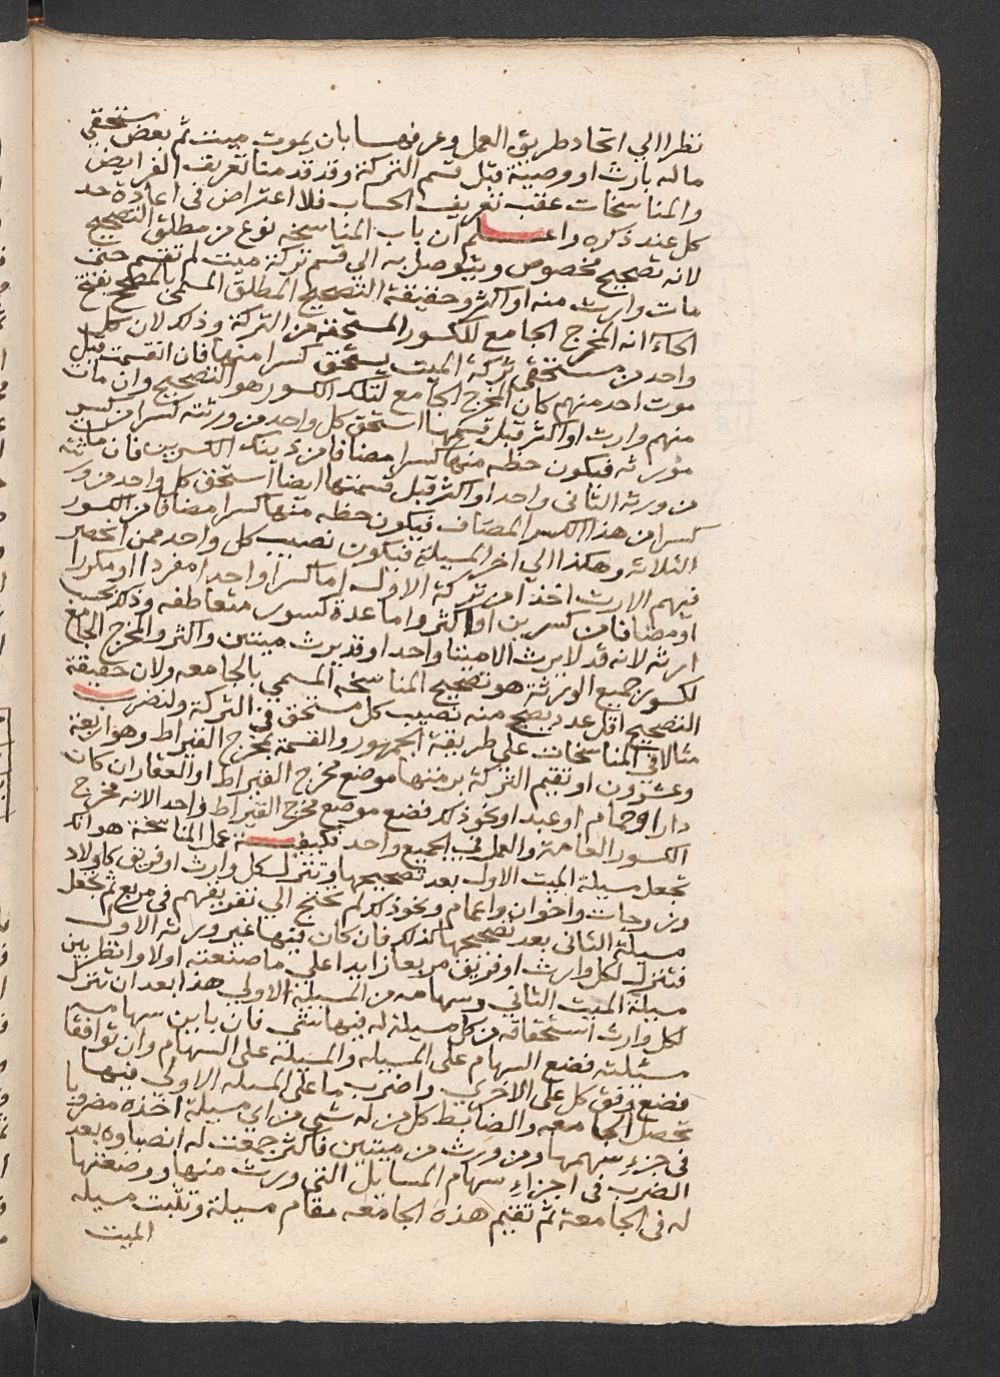 نظرا الي اتحاد طريق العمل وعرفها بان يموت ميت ثم بعض مستحقي
ماله بارث او وصية قبل قسم التركة وقد قدمنا تعريف الفرايض
والمناسخات عقب تعريف الحساب فلا اعتراض في اعادة حد
كل عند ذكره واعلم ان باب المناسخه نوع من مطلق التصحيح
لانه تصحيح مخصوص ويتوصل به الي قسم تركة ميت لم تقسم حتى
مات وارث منه او اكثر وحقيقة التصحيح المطلق المسمى بالمصحح بفتح
الحاء انه المخرج الجامع للكسور المستحقة من التركة وذلك لان كل
واحد من مستحقي تركة الميت يستحق كسرا منها فان انقسمت قبل
موت احد منهم كان المخرج الجامع لتلك الكسور هو التصحيح وان مات
منهم وارث او اكثر قبل قسمها استحق كل واحد من ورثته كسرا من كسر
مورثه فيكون حظه منها كسرا مضافا من ذينك الكسرين فان مات
من ورثة الثاني واحد او اكثر قبل قسمتها ايضا استحق كل واحد من ورثته
كسرا من هذا الكسر المضاف فيكون حظه منها كسرا مضافا من الكسور
الثلاثة وهكذا الي اخر المسيلة فيكون نصيب كل واحد ممن انحصر
فيهم الارث اخذا من تركة الاول اما كسرا واحدا مفردا او مكررا
او مضافا من كسرين او اكثر واما عدة كسور متعاطفه وذلك بحسب
ارثه لانه قد لا يرث الا ميتا واحدا وقد يرث ميتين واكثر والمخرج الجامع
لكسور جميع الورثة هو تصحيح المناسخه المسمي بالجامعه ولان حقيقة
التصحيح اقل عدد يصح منه نصيب كل مستحق في التركة ولنضرب
مثالا في المناسخات علي طريقة الجمهور والقسمة بمخرج القيراط وهو اربعة
وعشرون او تقيم التركة برمتها موضع مخرج القيراط او العقار ان كان
دارا او حمام او عبد او نحو ذلك فضع موضع مخرج القيراط واحد الانه مخرج
الكسور العامة والعمل في الجميع واحد فكيفية عمل المناسخة هو انك
تجعل مسيلة الميت الاول بعد تصحيحها وتنزل كل وارث او فريق كاولاد
وزوجات واخوان واعمام ونحو ذلك لم تحتج الي تفريقهم في مربع ثم تجعل
مسيلة الثاني بعد تصحيحها كذلك فان كان فيها غير ورثة الاول
فتنزل لكل وارث او فريق مربعا زايدا علي ما صنعته اولا وانظر بين
مسيلة الميت الثاني وسهامه من المسيلة الاولي هذا بعد ان تنزل
لكل وارث استحقاقه من كل مسيلة له فيها شي فان باين سهامه
مسئلته فضع السهام على المسيله والمسيلة على السهام وان توافقا
فضع وفق كل على الاخري واضرب ما على المسيله الاولي فيها
تحصل الجامعه والضابط كل من له شي من اي مسيلة اخذه مضروبا
في جزء سهمها ومن ورث من ميتين فاكثر جمعت له انصباوه بعد
الضرب في اجزاء سهام المسايل التي ورث منها ووضعتها
له في الجامعة ثم تقيم هذه الجامعه مقام مسيلة وتثبت مسيله
الميت